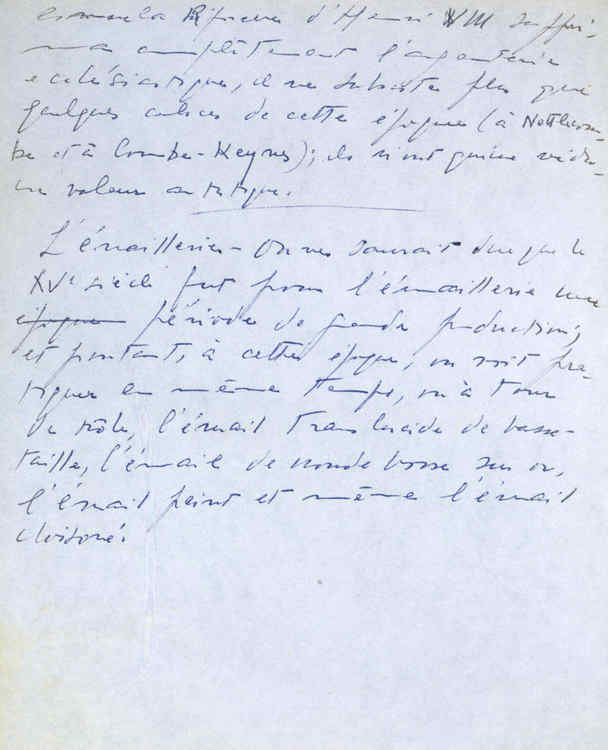 comme la Réforme d'Henri VIII suppri-
ma complètement l'argenterie
ecclésiastique, il ne subsiste plus que
quelques calices de cette époque (à Nettlecom-
be et à Combe-Keynes); ils n'ont guère
une valeur artistique.
L'émaillerie - On ne saurait dire que le
XVe siècle fut pour l'émaillerie une
époque période de grande production;
et pourtant, à cette époque, on voit pra-
tiquer en même temps, ou à tour
de rôle, l'émail translucide de basse-
taille, l'émail de ronde bosse sur or,
l'émail peint et même l'émail
cloisonné.